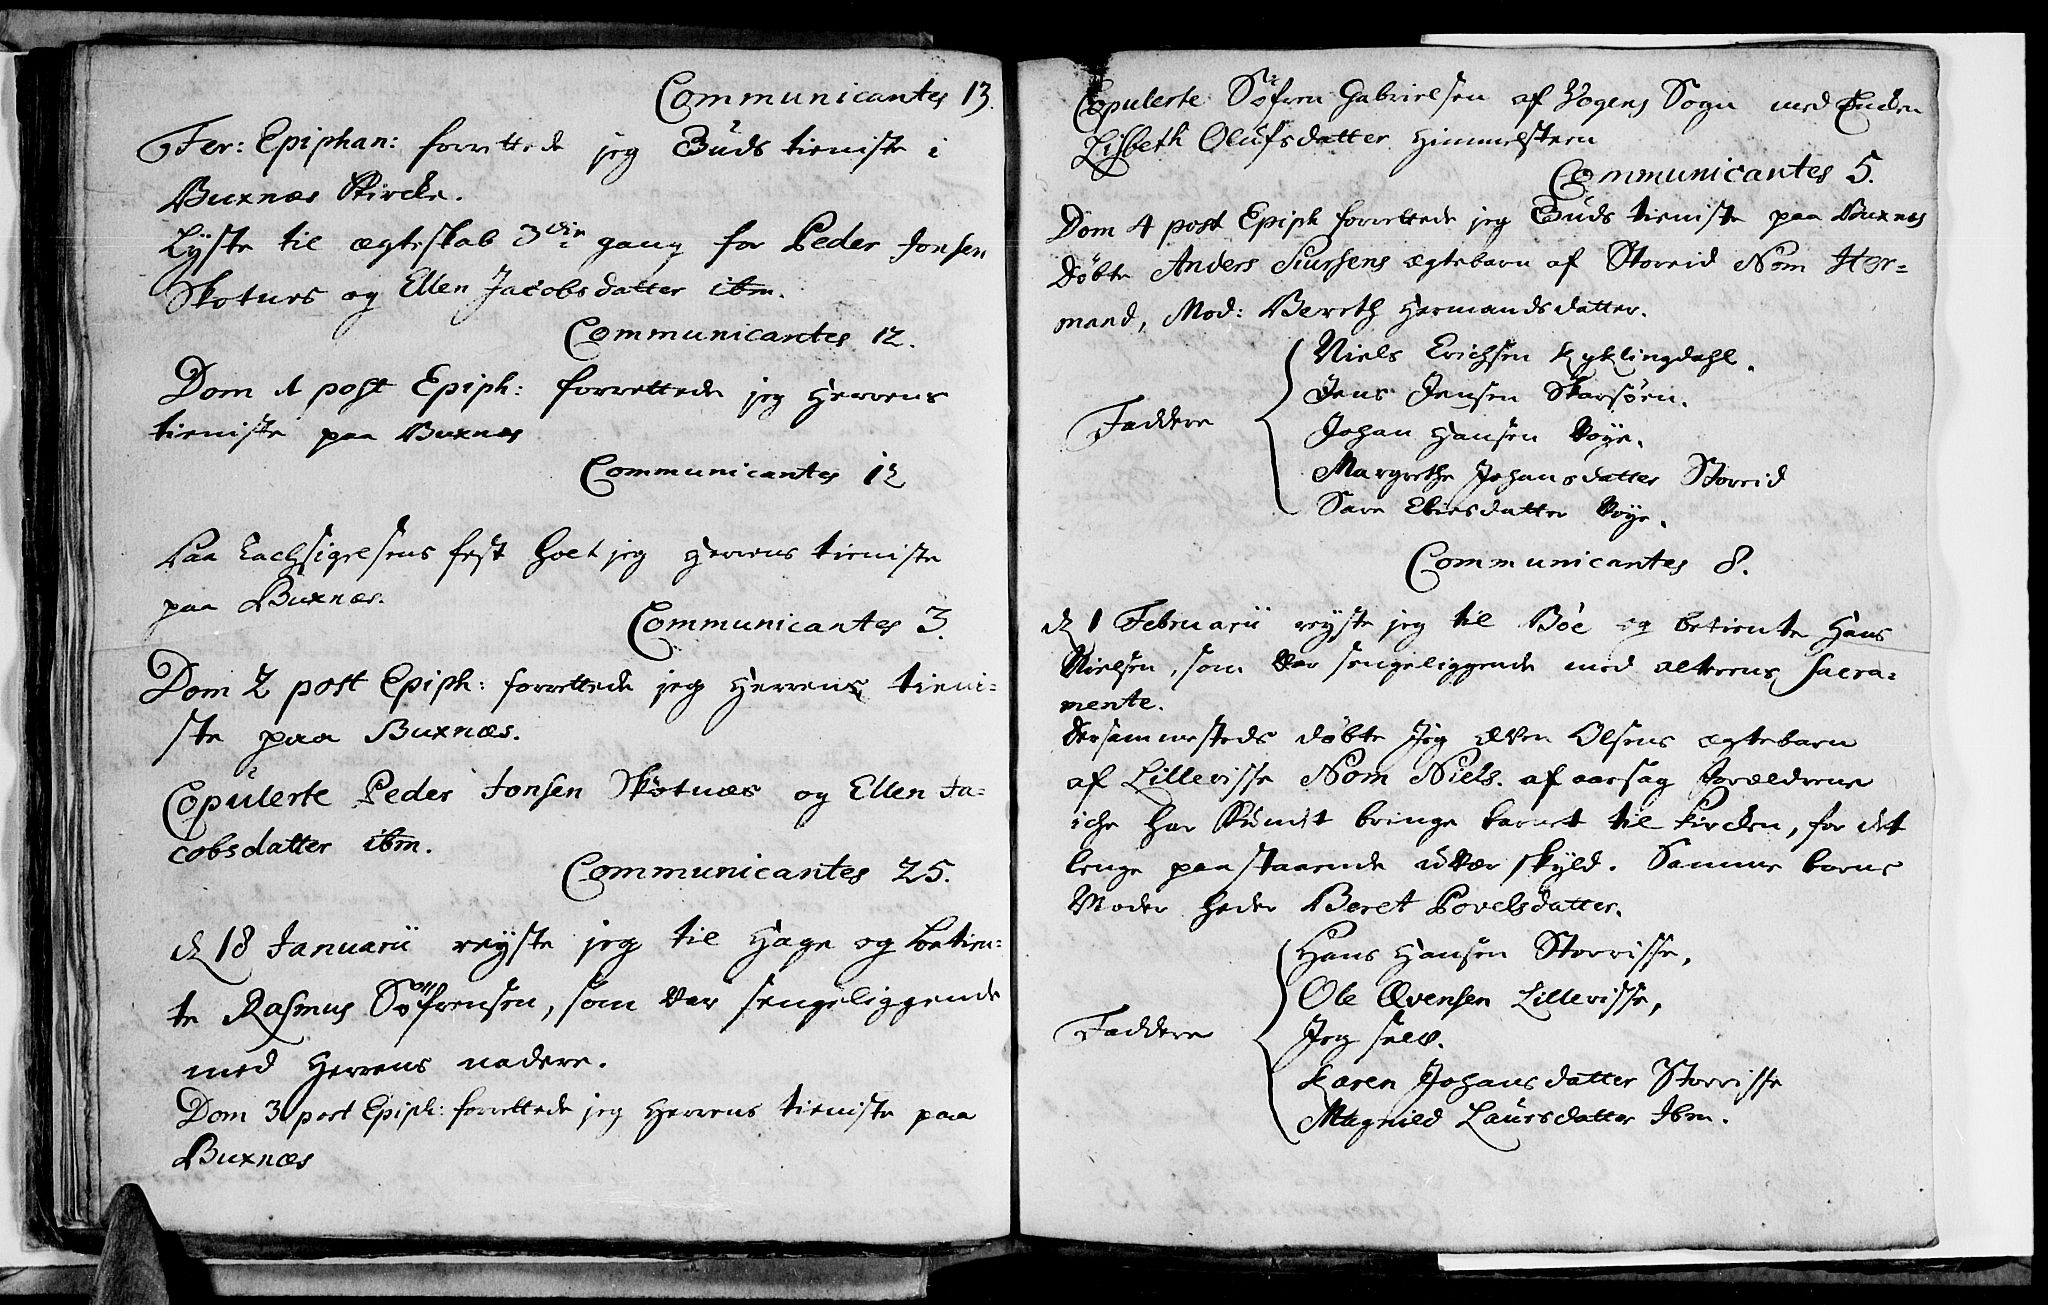 Communicantes 13.
Fer: Epiphan: forrettede jeg Guds tieniste i
Buxnæs Kircke.
Lyste til ægteskab 3die gang for Peder Jonsen
Skotnæs og Ellen Jacobsdatter ibm.
Communicantes 12.
Dom 1 post Epiph: forrettede jeg Herrens
tieniste paa Buxnæs
Communicantes 12
Paa Tachsigelsens fest holt jeg Herrens tieniste
paa Buxnæs.
Communicantes 3.
Dom 2 post Epiph: forrettede jeg Herrens tieni-
ste paa Buxnæs.
Copulerte Peder Jonsen Skotnæs og Ellen Ja-
cobsdatter ibm.
Communicantes 25.
d 18 Januarii reyste jeg til Hage og betien-
te Rasmus Söfrensen, som var sengeliggende
med Herrens nadere.
Dom 3 post Epiph: forrettede jeg Herrens tieniste paa
Buxnæs
Copulerte Söfren Gabrielsen af Vogens Sogn med Encken
Lisbeth Olufsdatter Himmelsteen
Communicantes 5.
Dom 4 post Epiph forrettede jeg Guds tieniste paa Buxnæs
Døbte Anders Siursens ægtebarn af Storeid Nom Her-
mand, Mod: Bereth Hermandsdatter.
Niels Erichsen Kyklingdahl.
Jens Jensen Skarsöen.
Faddere
Johan Hansen Voye.
Margrethe Johansdatter Storeid
Sara Eliesdatter Voye.
Communicantes 8.
d 1 Februarii reyste jeg til Böe og betiente Hans
Nielsen, som var sengeliggende med alterens Sacra-
mente.
Dersammesteds døbte Jeg Æven Olsens ægtebarn
af Lillevisse Nom Niels. af aarsag Forældrene
iche har kundt bringe barnet til kircken, for det
lenge paastaaende uvær skyld. Samme barns
Moder heder Beret Povelsdatter.
Hans Hansen Storvisse,
Ole Ævensen Lillevisse,
Faddere
Jeg selv.
Karen Johansdatter Storvisse
Magnild Laursdatter Ibm.